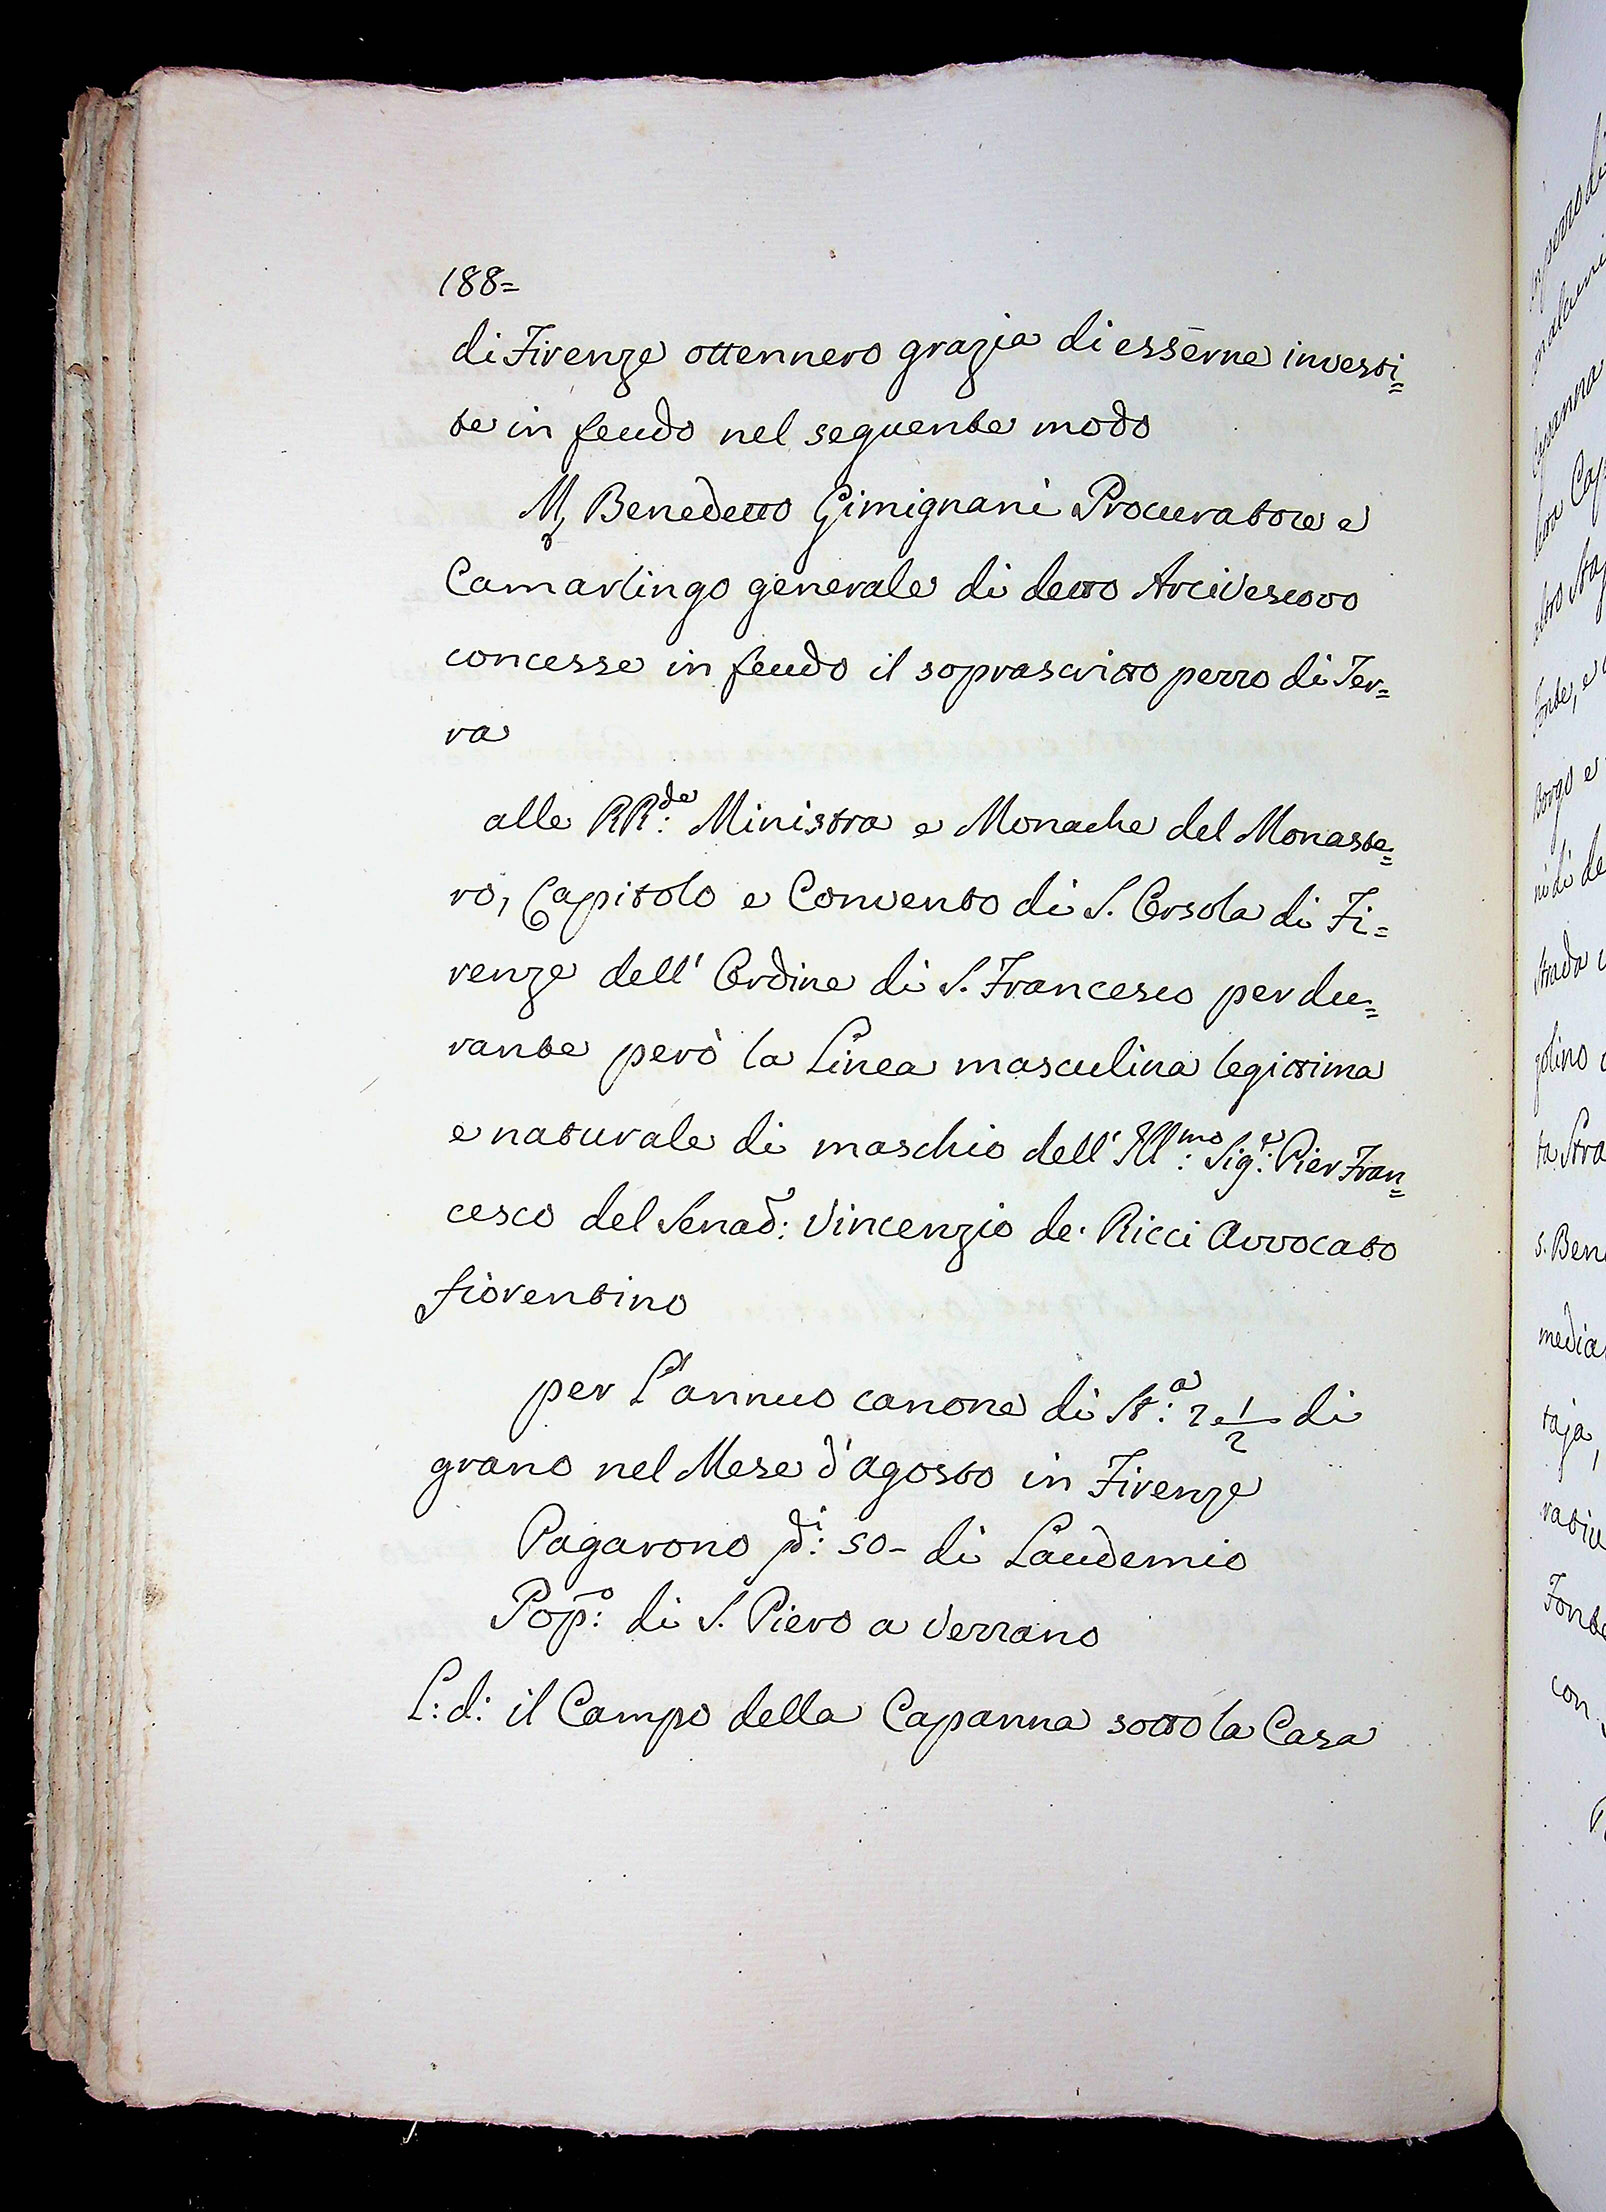 188=
di Firenze ottennero grazia di esserne investi=
te in feudo nel seguente modo
M. Benedetto Gimignani Procuratore e
Camarlingo generale di detto Arcivescovo
concesse in feudo il soprascritto pezzo di Ter=
ra
alle RR:de Ministra e Monache del Monaste=
ro, Capitolo e Convento di S. Orsola di Fi=
renze dell' Ordine di S. Francesco per du=
rante però la Linea masculina legittima
e naturale di maschio dell' Ill:mo Sig:e Pier Fran=
cesco del Senad: Vincenzio de' Ricci Avvocato
fiorentino
per l'annuo canone di St:a 2 1/2 di
grano nel Mese d'agosto in Firenze
Pagarono di: 50- di Laudemio
Pop:o di S. Piero a Vezzano
L: d: il Campo della Capanna sotto la Casa